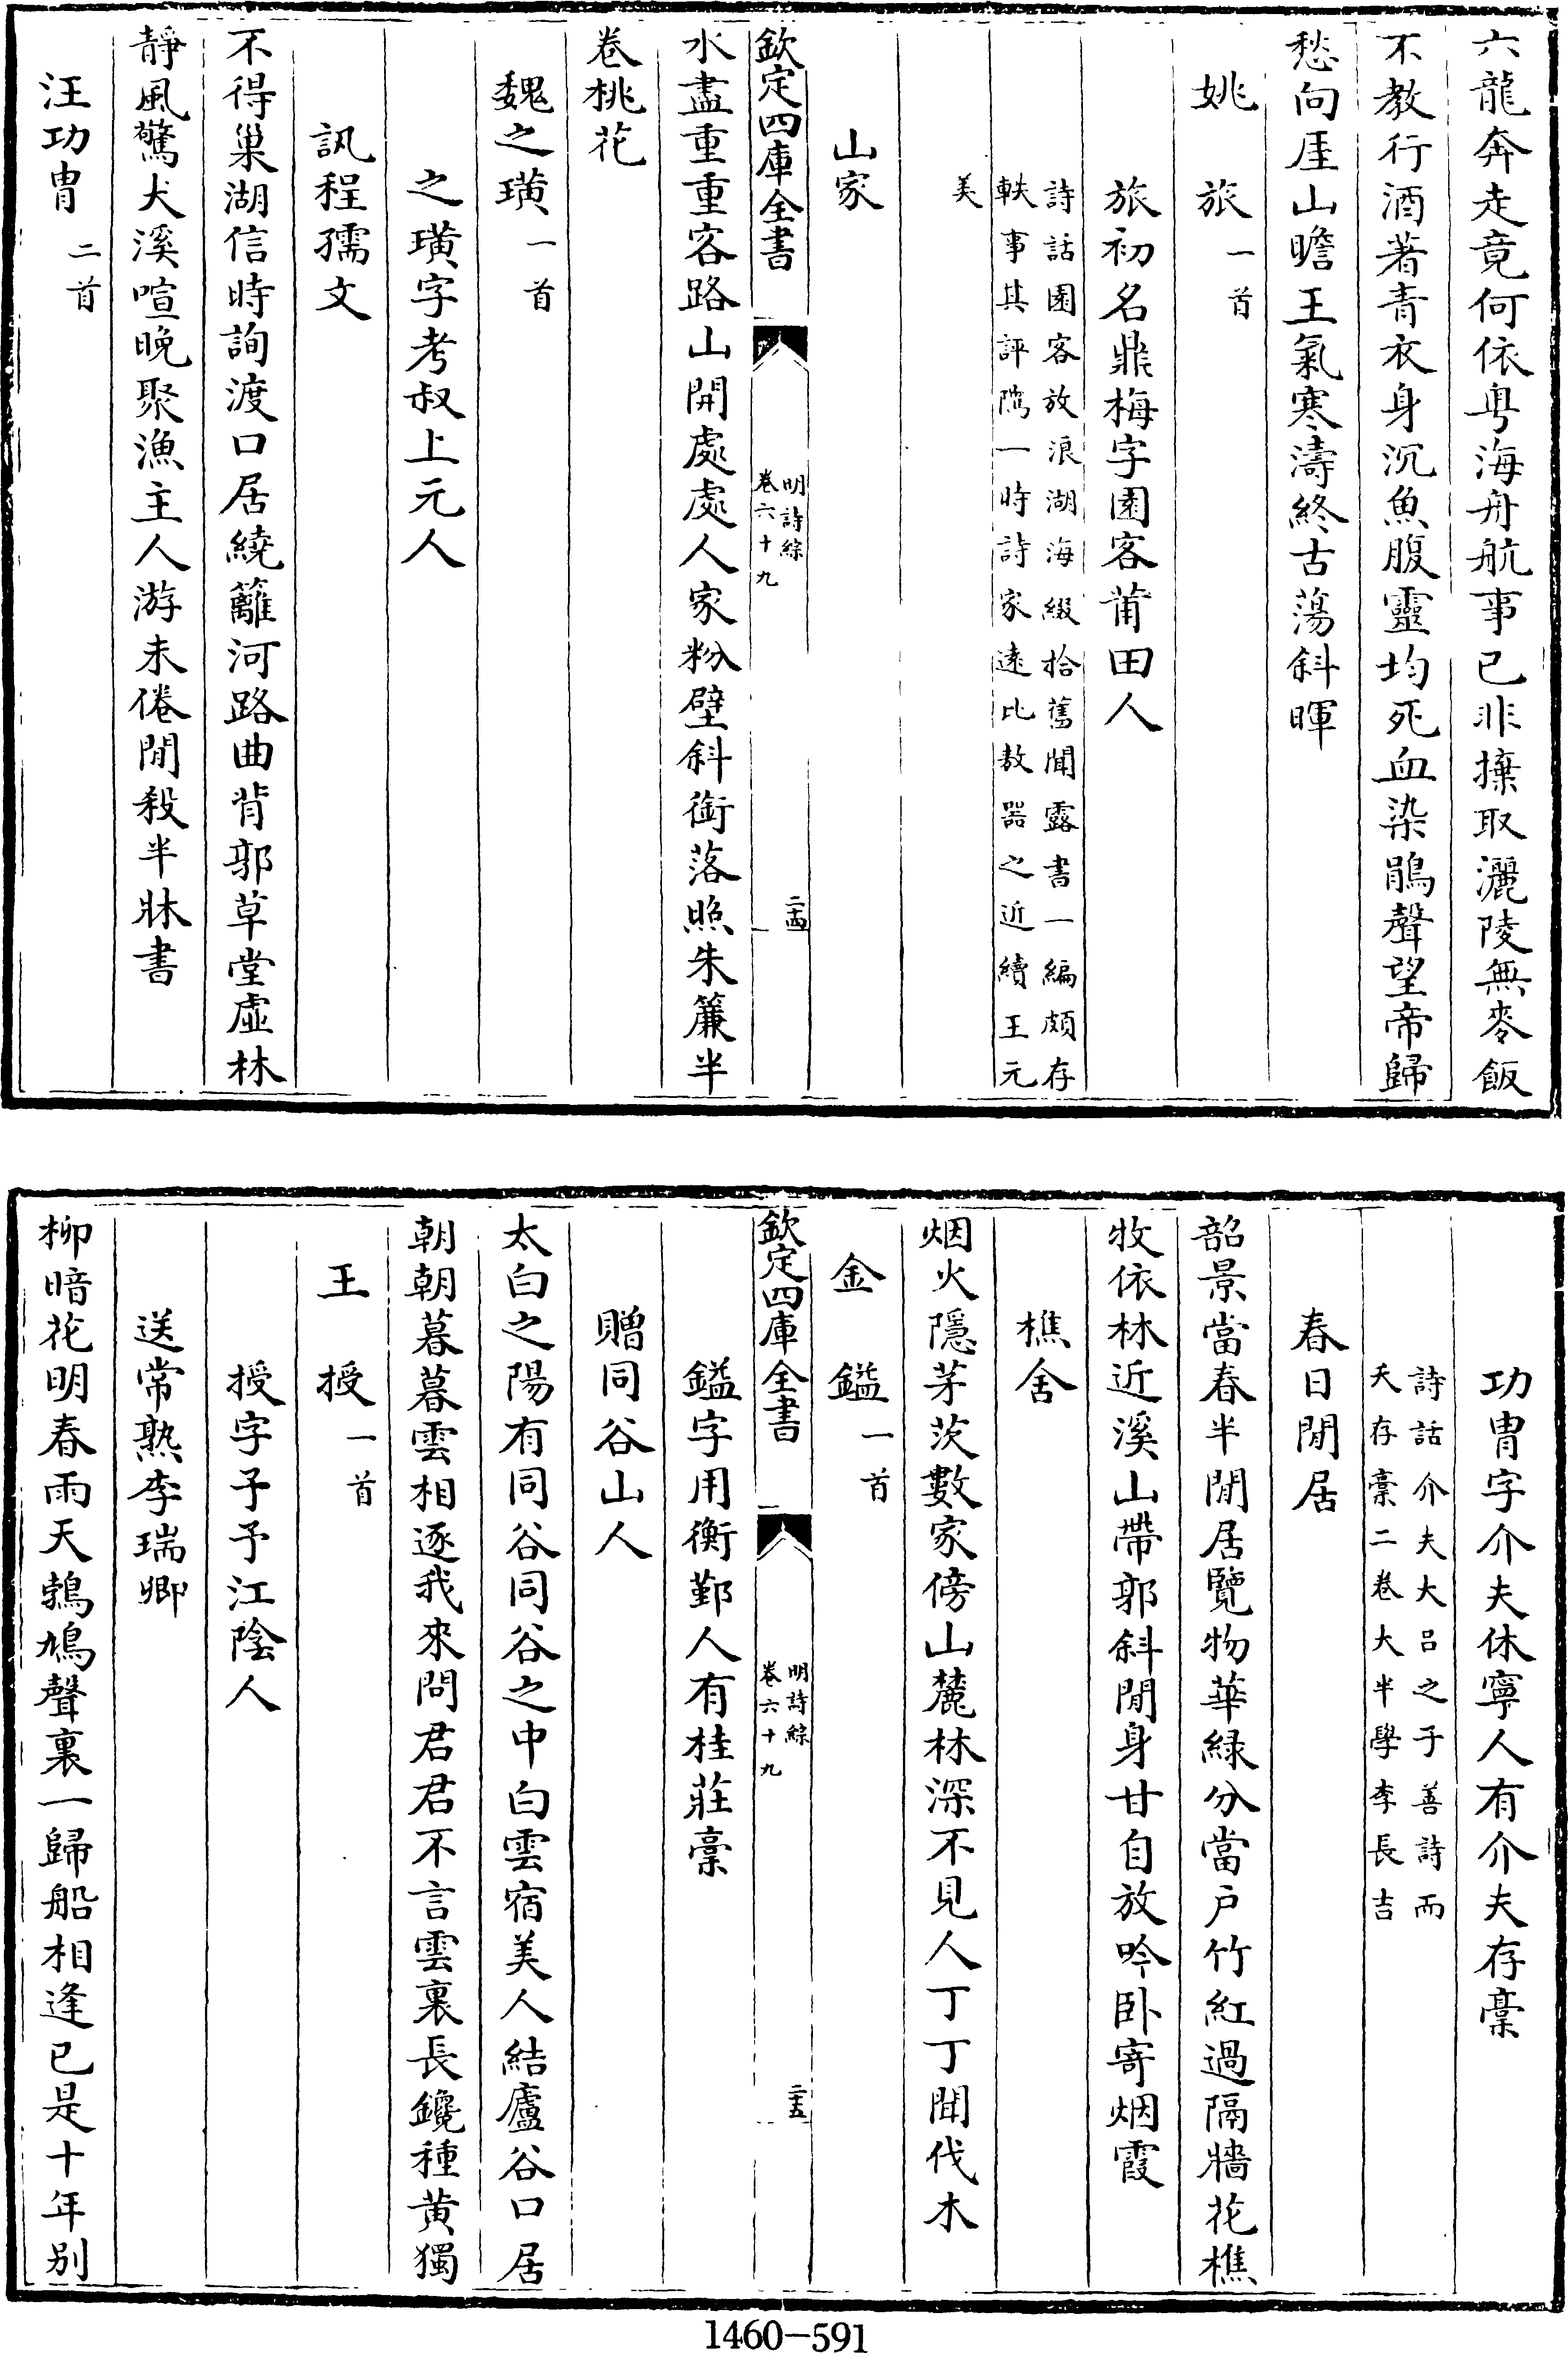 六龍奔走竟何依粤海舟航事已非攈取灑陵無麥飯
不教行酒著青衣身沉魚腹靈均死血染鵑聲望帝歸
愁向厓山瞻王氣寒濤終古蕩斜暉
姚旅一首
旅初名鼎梅字園客莆田人
詩話園客放浪湖海綴拾舊聞露書一編頗存
軼事其評隲一時詩家遠比敖器之近續王元
美
山家
欽定四庫全書
明詩綜
卷六十九
二十四
水盡重重客路山開處處人家粉壁斜銜落照朱簾半
卷桃花
魏之璜一首
之璜字考叔上元人
訊程孺文
不得巢湖信時詢渡口居繞籬河路曲背郭草堂虛林
靜風驚犬溪喧晚聚漁主人游未倦閒殺半牀書
汪功胄二首
功胄字介夫休寧人有介夫存稾
詩話介夫大吕之子善詩而
夭存稾二卷大半學李長吉
春日閒居
韶景當春半閒居覽物華緑分當户竹紅過隔牆花樵
牧依林近溪山帶郭斜閒身甘自放吟卧寄烟霞
樵舍
烟火隱茅茨數家傍山麓林深不見人丁丁聞伐木
金鎰一首
欽定四庫全書
明詩綜
卷六十九
二十五
鎰字用衡鄞人有桂莊稾
贈同谷山人
太白之陽有同谷同谷之中白雲宿美人結廬谷口居
朝朝暮暮雲相逐我來問君君不言雲裏長鑱種黄獨
王授一首
授字子予江陰人
送常熟李瑞卿
柳暗花明春雨天鵓鳩聲裏一歸船相逢已是十年别
1460-591